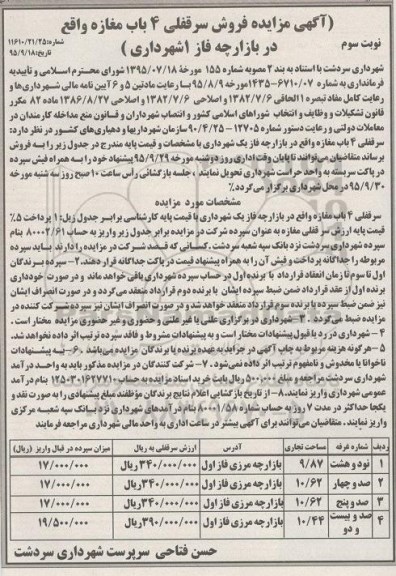 (آگهی مزایده فروش سرقفلی ۴ باب مغازه واقع
در بازارچه فاز ۱شهرداری )
نوبت سوم
شماره:۱۱۶۱۰/۲۱/۲۵
تاریخ:۹۵/۹/۱۸
شهرداری سردشت با استناد به بند ۲ مصوبه شماره ۱۵۵ مورخهٔ ۱۳۹۵/۰۷/۱۸ شورای محترم اسلامی و تاییدیه
فرمانداری به شماره ۱۴۳۵-۶۷۱۰/۰۷ مورخه ۹۵/۸/۹ بسا رعایت مادتین ۵ و ۶ آیین نامه مالی شهرداری‌ها و
رعایت کامل مفاد تبصره ۱ الحاقی ۱۳۸۲/۷/۶ و اصلاحی ۱۳۸۲/۷/۶ و اصلاحی ۱۳۸۶/۸/۲۷ ماده ۸۲ مکرر
قانون تشکیلات و وظایف و انتخاب شوراهای اسلامی کشور و انتصاب شهرداران و قانون منع مداخله کارمندان در
معاملات دولتی و رعایت دستور شماره ۱۲۷۰۵-۹۰/۴/۲۵ سازمان شهرداریها و دهیاری‌های کشور در نظر دارد:
سرقفلی ۴ باب مغازه واقع در بازارچه فاز یک شهرداری با مشخصات و قیمت پایه مندرج در جدول زیر را به فروش
برساند متقاضیان می‌توانند تا پایان وقت اداری روز دوشنبه مورخه ۹۵/۹/۲۹ پیشنهاد خود را به همراه فیش سپرده
در پاکت سربسته به واحد حراست شهرداری تحویل نمایند ؛ جلسه بازگشائی راس ساعت ۱۰ صبح روز سه شنبه مورخه
۹۵/۹/۳۰ در محل شهرداری برگزار می‌گردد.٪
مشخصات مورد مزایده
سرقفلی ۴ باب مغازه واقع در بازارچه فاز یک شهرداری با قیمت پایه کارشناسی برابر جدول زیل: ۱ پرداخت ۵٪
قیمت پایه ارزش سر قفلی مغازه به عنوان سپرده شرکت در مزایده برابر جدول زیر واریز به حساب ۸۰۰۰۲/۶۱ بنام
سپرده شهرداری سردشت نزد بانک سپه شعبه سردشت .کسانی که قصد شرکت در مزایده را دارند باید سپرده
مربوطه را جداگانه پرداخت و فیش آن را به همراه پیشنهاد قیمت در پاکت جداگانه قرار دهند. ۲- سپرده برندگان
اول تا سوم تا زمان انعقاد قرارداد با برنده اول در حساب سپرده شهرداری باقی خواهد ماند و در صورت خودداری
برنده اول از عقد قرارداد ضمن ضبط سپرده ایشان با برنده دوم قرارداد منعقد می‌گردد و در صورت انصراف ایشان
نیز ضمن ضبط سپرده با برنده سوم قرارداد منعقد خواهد شد و در صورت انصراف ایشان نیز سپرده شرکت کننده در
مزایده ضبط می‌گردد ۳- شهرداری در برگزاری علنی یا غیر علنی و حضوری و غیر حضوری مزایده مختار است .
۴- شهرداری در رد یا قبول پیشنهادات مختار است و به پیشنهادات مشروط و فاقد سپرده ترتیب اثر داده نخواهد شد.
۵- هرگونه هزینه مربوط به چاپ آگهی در جراید به عهده برنده یا برندگان مزایده می‌باشد ۶- به پیشنهادات
ناخوانا یا مخدوش و نامفهوم ترتیب اثر داده نمی‌شود. ۷- شرکت کنندگان در مزایده مذکور باید به واحد درآمد
شهرداری سردشت مراجعه و مبلغ ۵۰۰/۰۰۰ ریال بابت خرید اسناد مزایده به حساب ۳۱۶۲۷۷۱-۱۲۵ بنام درآمد
عمومی شهرداری واریز نمایند. ۸- از تاریخ بازگشایی اعلام نتایج برندگان مؤظفند مبلغ پیشنهادی را به صورت نقد و
یکجا حداکثر در مدت ۷ روز به حساب شماره ۸۰۰۰/۵۸ بنام درآمدهای شهرداری نزد بانک سپه شعبه مرکزی
واریز نمایند. متقاضیان می‌توانند برای آگهی بیشتر در ساعات اداری به واحد مالی شهرداری مراجعه فرمایند
ردیف شماره غرفه مساحت تجاری آدرس ارزش سرقفلی به ریال میزان سپرده در قبال واریز (ریال)
۱ نود و هشت ۹/۸۷ بازارچه مرزی فاز اول ۳۴۰/۰۰۰/۰۰۰ریال ۱۷/۰۰۰/۰۰۰
۲ صد و چهار ۱۰/۶۲ بازارچه مرزی فاز اول ۳۴۰/۰۰۰/۰۰۰ریال ۱۷/۰۰۰/۰۰۰
۳ صد و پنج ۱۰/۶۲ بازارچه مرزی فاز اول ۳۴۰/۰۰۰/۰۰۰ریال ۱۷/۰۰۰/۰۰۰
۴ صد و بیست و دو ۱۰/۴۴ بازارچه مرزی فاز اول ۳۹۰/۰۰۰/۰۰۰ریال ۱۹/۵۰۰/۰۰۰
حسن فتاحی سرپرست شهرداری سردشت